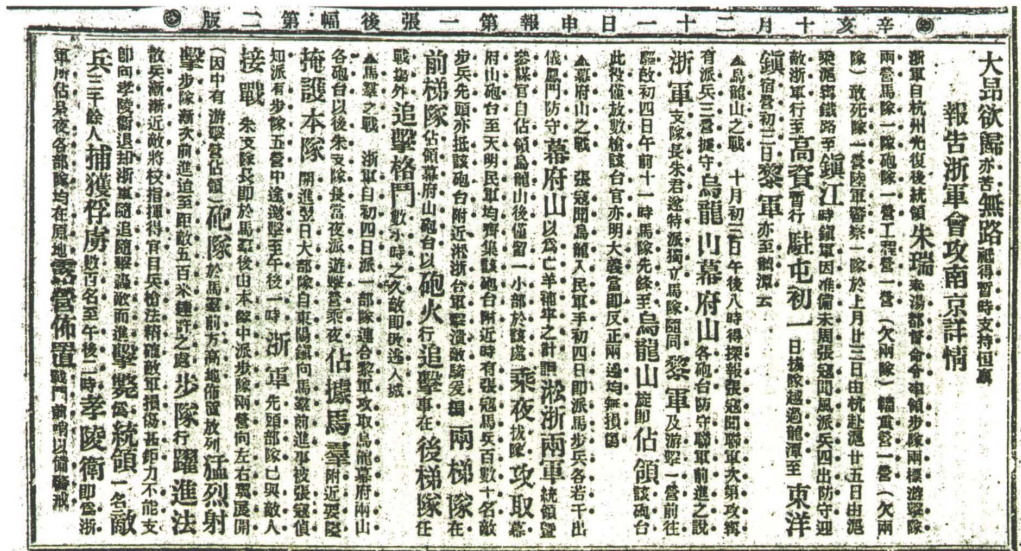 辛亥十月二十一日申報第一張後幅第二版
大昂欲歸亦苦無路祗得暫時支持恒裏
報告浙軍會攻南京詳情
浙軍自杭州光復後統領朱瑞奉湯都督命令率領步隊兩標游擊隊
兩營馬隊一隊砲隊一營工程營一營(欠兩隊)輜重營一營(欠兩
隊)敢死隊一營陸軍警察一隊於上月廿三日由杭赴滬廿五日由滬
乘滬甯鐵路至鎮江時鎮軍因准備未周張寇聞風派兵四出防守迎
敵浙軍行至高資暫行駐屯初一日拔隊越過龍潭至東洋
鎮宿營初三日黎軍亦至龍潭云
▲烏龍山之戰 十月初三日午後八時得探報張寇聞聯軍次第攻甯
有派兵三營擴守烏龍山幕府山各砲台防守聯軍前進之說
浙軍支隊長朱君遂特派獨立馬隊隨同黎軍及游擊一營前往
驅敵初四日午前十一時馬隊先鋒至烏龍山旋即佔領該砲台
此役僅放數槍該台官亦明大義當即反正兩邊均無損傷
▲幕府山之戰 張寇聞烏龍入民軍手初四日即派馬步兵各若干出
儀鳳門防守幕府山以為亡羊補牢之計詎淞浙兩軍統領暨
參謀官自佔領烏龍山後僅留一小部於該處乘夜拔隊攻取幕
府山砲台至天明民軍均齊集該砲台附近時有張寇馬兵百數十名敵
步兵先頭亦抵該砲台附近淞浙台軍擊潰敵騎爰編兩梯隊在
前梯隊佔領幕府山砲台以砲火行追擊事在後梯隊任
戰場外追擊格鬥數小時之久敵即敗逃入城
▲馬羣之戰 浙軍自初四日派一部隊連合黎軍攻取烏龍幕府兩山
各砲台以後朱支隊長當夜派遊擊營乘夜佔據馬羣附近要隘
掩護本隊開進翌日大部隊自東陽鎮向馬羣前進事被張寇偵
知派有步隊五營中途邀擊至午後一時浙軍先頭部隊已與敵人
接戰 朱支隊長即於馬羣後由本隊中派步隊兩營向左右翼展開
(因中有游擊營佔領)砲隊於馬羣前方高地佈置放列猛烈射
擊步隊漸次前進迨至距敵五百米達許之處步隊行躍進法
散兵漸漸近敵將校指揮得官目兵槍法精確敵軍損傷甚鉅力不能支
即向孝陵衛退却浙軍隨追隨擊議敵而進擊斃偽統領一名敵
兵三千餘人捕獲俘虜數百名至午後一時孝陵衛即為浙
軍所佔是夜各部隊均在原地露營佈置戰鬥前哨以備警戒